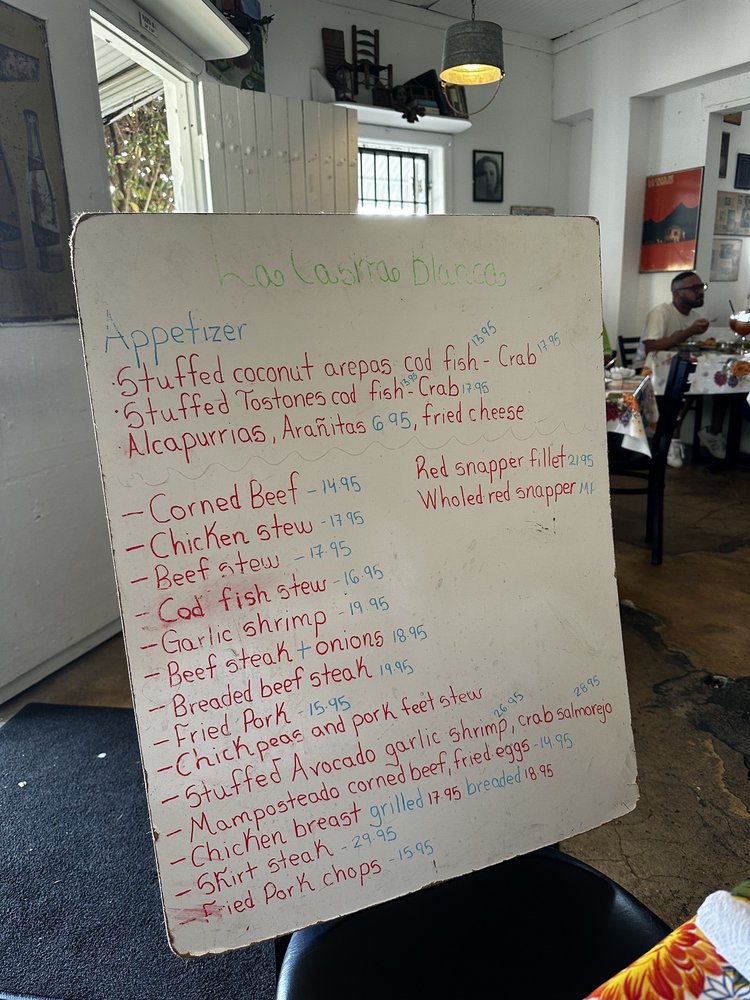 La Casita Blanca
Appetizer
·Stuffed coconut arepas cod fish 13.95 - Crab 17.95
·Stuffed Tostones cod fish 13.95 - Crab 17.95
Alcapurrias, Arañitas 6 95, fried cheese
Red snapper fillet 21.95
Wholed red snapper
- Corned Beef - 14.95
- Chicken stew - 17.95
- Beef stew - 17.95
- Cod fish stew - 16.95
- Garlic shrimp - 19.95
- Beef steak + onions 18.95
- Breaded beef steak 19.95
- Fried Pork - 15.95
- Chick peas and pork feet stew
- Stuffed Avocado garlic shrimp 26.95, crab salmorejo 28.95
- Mamposteado corned beef, fried eggs - 19.95
- Chicken breast grilled 17.95 breaded 18.95
- Skirt steak - 29.95
- Fried Pork chops - 15.95